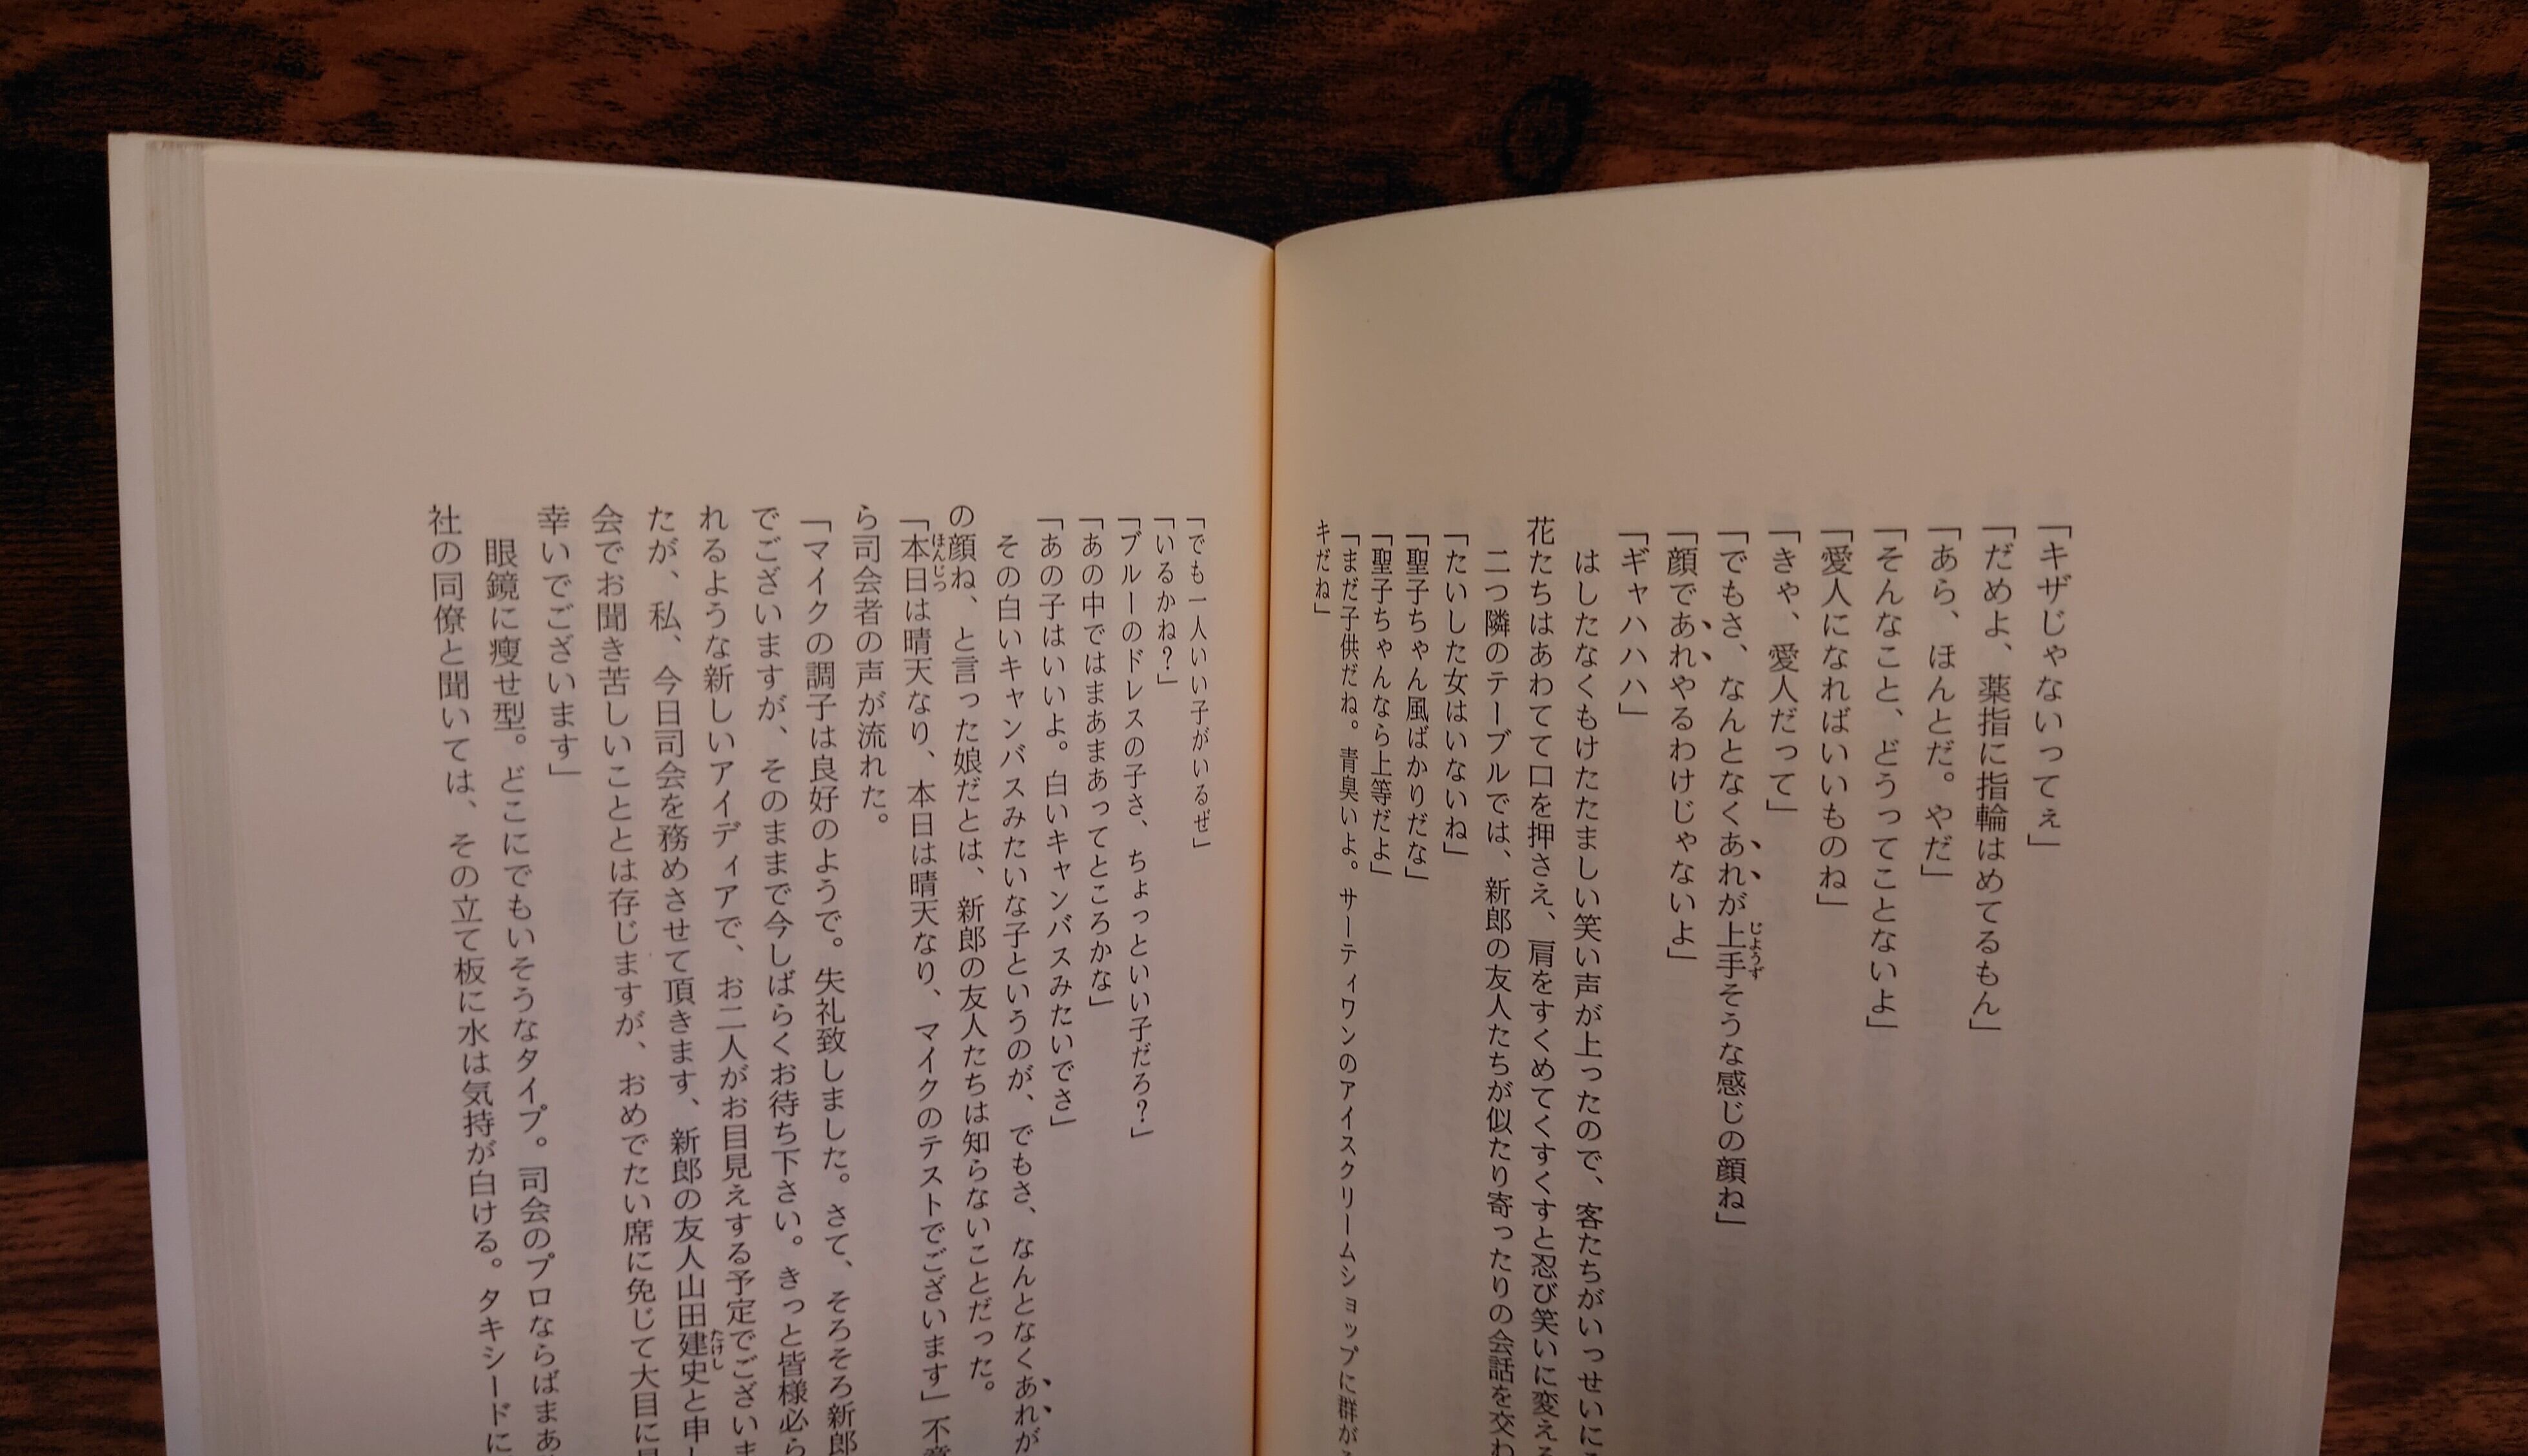 「キザじゃないってぇ」
「だめよ、薬指に指輪はめてるもん」
「あら、ほんとだ。やだ」
「そんなこと、どうってことないよ」
「愛人になればいいものね」
「きゃ、愛人だって」
「でもさ、なんとなくあれが上手そうな感じの顔ね」
じようず
「顔であれやるわけじゃないよ」
「ギャハハハ」
はしたなくもけたたましい笑い声が上ったので、客たちがいっせいに
花たちはあわてて口を押さえ、肩をすくめてくすくすと忍び笑いに変える
二つ隣のテーブルでは、新郎の友人たちが似たり寄ったりの会話を交わ
「たいした女はいないね」
「聖子ちゃん風ばかりだな」
「聖子ちゃんなら上等だよ」
「まだ子供だね。青臭いよ。サーティワンのアイスクリームショップに群がる
キだね」
「でも一人いい子がいるぜ」
「いるかね?」
「ブルーのドレスの子さ、ちょっといい子だろ?」
「あの中ではまあまあってところかな」
「あの子はいいよ。白いキャンバスみたいでさ」
その白いキャンバスみたいな子というのが、でもさ、なんとなくあれが
の顔ね、と言った娘だとは、新郎の友人たちは知らないことだった。
「本日は晴天なり、本日は晴天なり、マイクのテストでございます」不意
ほんじつ
ら司会者の声が流れた。
「マイクの調子は良好のようで。失礼致しました。さて、そろそろ新郎
でございますが、そのままで今しばらくお待ち下さい。きっと皆様必ら
れるような新しいアイディアで、お二人がお目見えする予定でございま
たが、私、今日司会を務めさせて頂きます、新郎の友人山田建史と申し
たけし
会でお聞き苦しいこととは存じますが、おめでたい席に免じて大目に見
幸いでございます」
眼鏡に瘦せ型。どこにでもいそうなタイプ。司会のプロならばまあ
社の同僚と聞いては、その立て板に水は気持が白ける。タキシードに